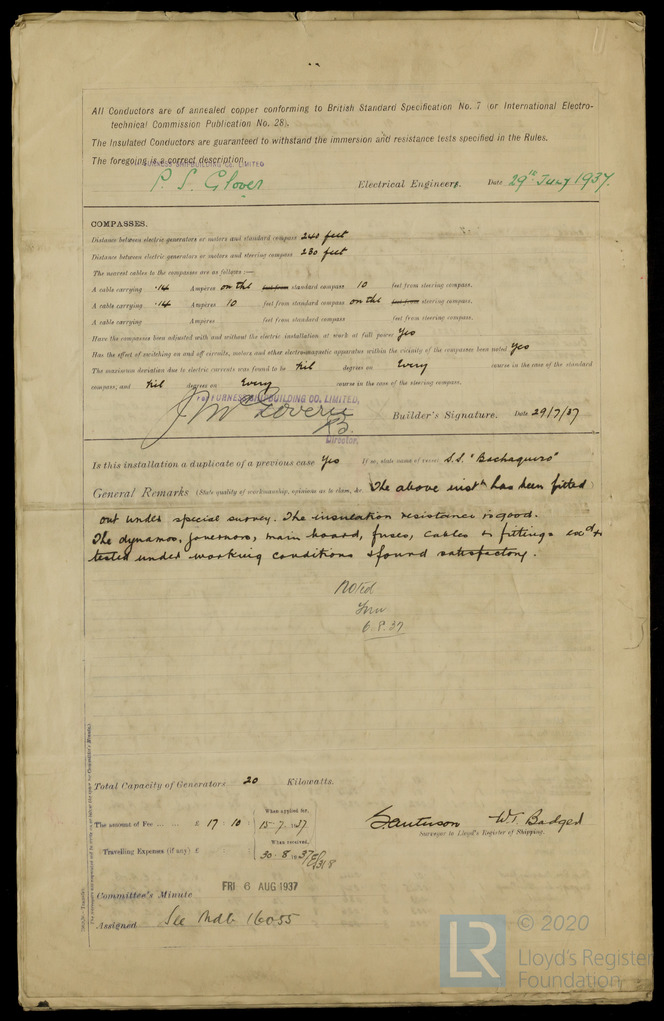 All Conductors are of annealed copper conforming to British Standard Specification No. 7 (or International Electro-
technical Commission Publication No. 28).
The Insulated Conductors are guaranteed to withstand the immersion and resistance tests specified in the Rules.
The foregoing is a correct description.
FURNESS SHIPBUILDING CO. LIMITED
P. S. Glover Electrical Engineers. Date 29th July 1937.
COMPASSES.
Distance between electric generators or motors and standard compass 240 feet
Distance between electric generators or motors and steering compass 230 feet
The nearest cables to the compasses are as follows :—
A cable carrying .14 Ampères on the feet from standard compass 10 feet from steering compass.
A cable carrying .14 Ampères 10 feet from standard compass on the feet from steering compass.
A cable carrying Ampères feet from standard compass feet from steering compass.
Have the compasses been adjusted with and without the electric installation at work at full power Yes
Has the effect of switching on and off circuits, motors and other electro-magnetic apparatus within the vicinity of the compasses been noted Yes
The maximum deviation due to electric currents was found to be Nil degrees on Every course in the case of the standard
compass, and Nil degrees on Every course in the case of the steering compass.
FOR FURNESS SHIPBUILDING CO. LIMITED,
Builder's Signature. Date 29/7/37
Director.
Is this installation a duplicate of a previous case Yes If so, state name of vessel S.S. "Bachaquero"
General Remarks (State quality of workmanship, opinions as to class, &c. The above instn has been fitted
out under special survey. The insulation resistance is good.
The dynamos, governors, main board, fuses, cables & fittings exd &
tested under working conditions & found satisfactory.
Noted
6.8.37
Total Capacity of Generators 20 Kilowatts.
The amount of Fee ... ... £ 17 : 10 : When applied for, 15.7.1937
When received,
Travelling Expenses (if any) £ 30.8.1937
W.T. Badger
Surveyor to Lloyd's Register of Shipping.
Committee's Minute FRI 6 AUG 1937
Assigned See Mdb 16055
LR © 2020
Lloyd's Register
Foundation